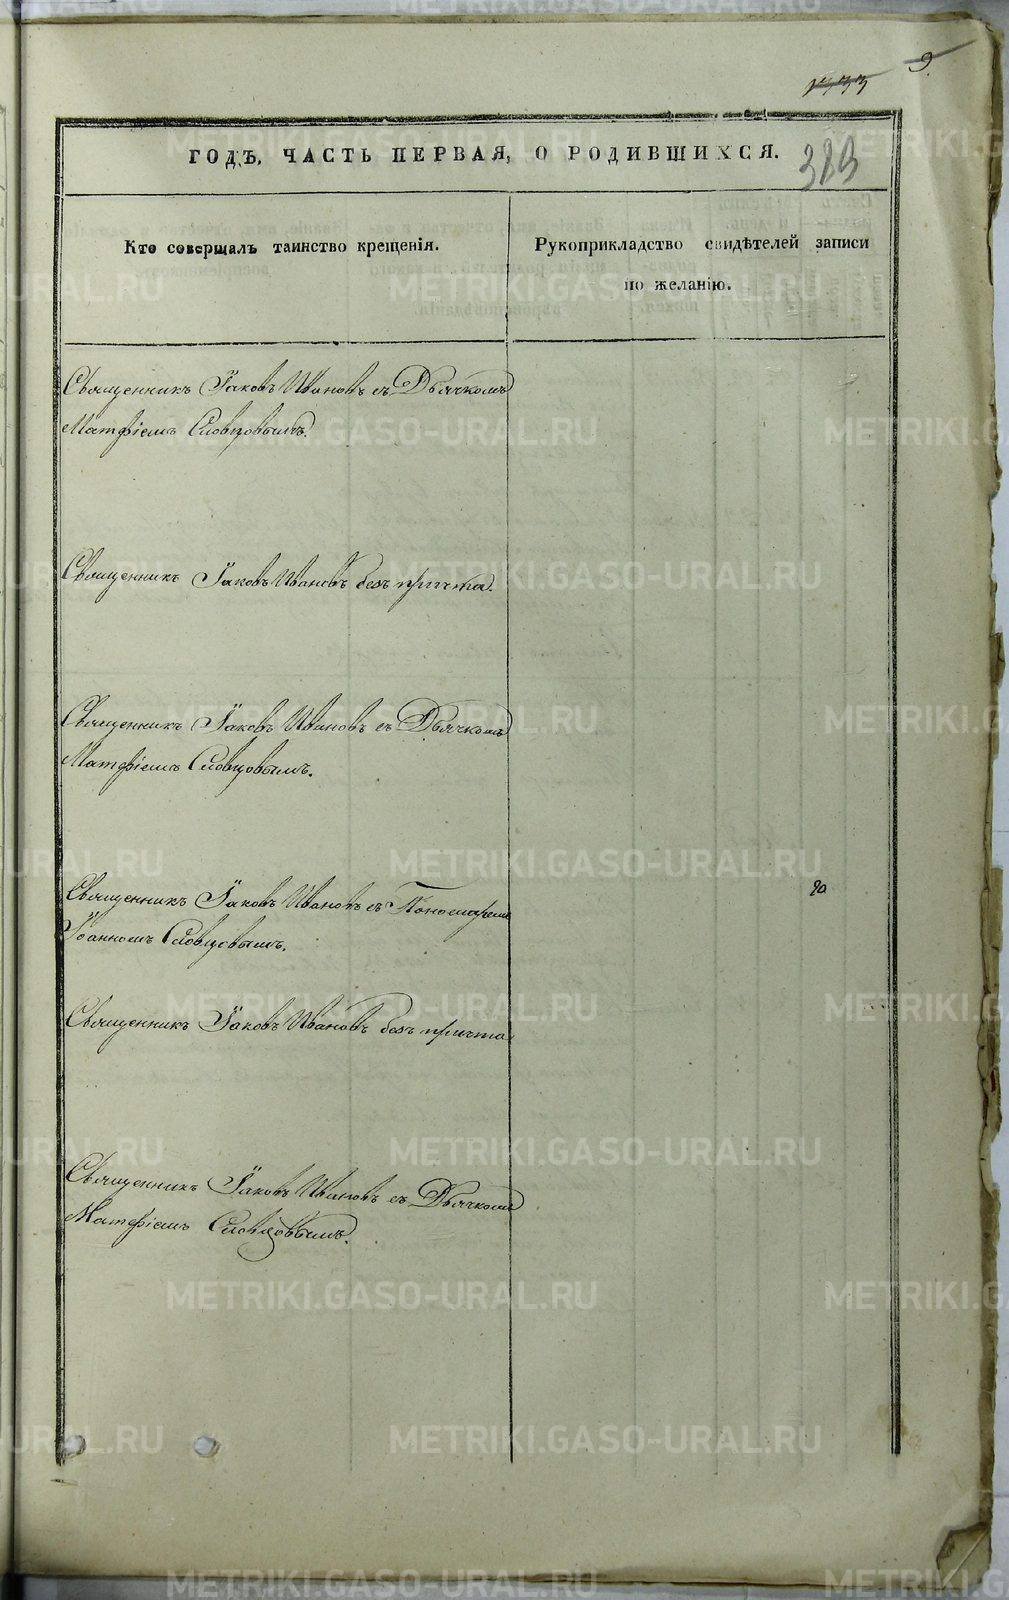 9.
1733
ГОДЪ, ЧАСТЬ ПЕРВАЯ, О РОДИВШИХСЯ.
Кто совершалъ таинство крещенія.
Рукоприкладство свидѣтелей записи
по желанію.
Священникъ Іаковъ Ивановъ съ Дьячкомъ
Матфіемъ Словцовымъ.
Священникъ Іаковъ Ивановъ безъ причта.
Священникъ Іаковъ Ивановъ съ Дьячкомъ
Матфіемъ Словцовымъ.
Священникъ Іаковъ Ивановъ съ Пономаремъ
Іоанномъ Словцовымъ.
Священникъ Іаковъ Ивановъ безъ причта.
Священникъ Іаковъ Ивановъ съ Дьячкомъ
Матфіемъ Словцовымъ.
METRIKI.GASO-URAL.RU